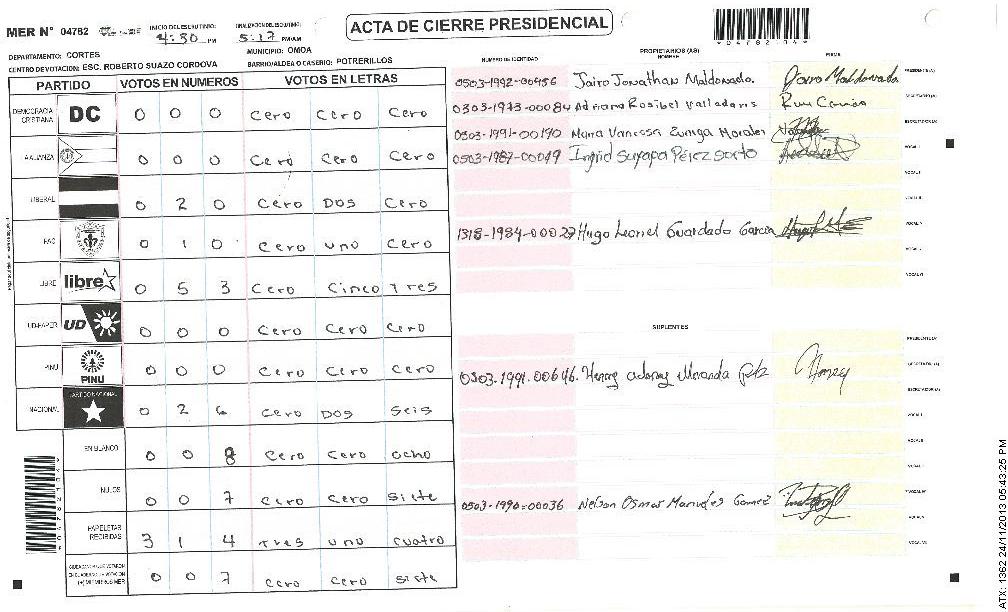 MER N° 04782
INICIO DEL ESCRUTINIO: 4:30 PM
FINALIZACION DEL ESCRUTINIO: 5:17 PM/AM
ACTA DE CIERRE PRESIDENCIAL
*04782.04*
DEPARTAMENTO: CORTES MUNICIPIO: OMOA
CENTRO DE VOTACION: ESC. ROBERTO SUAZO CORDOVA BARRIO/ALDEA O CASERIO: POTRERILLOS
PARTIDO VOTOS EN NUMEROS VOTOS EN LETRAS
DEMOCRACIA CRISTIANA DC 0 0 0 Cero Cero Cero
ALIANZA 0 0 0 Cero Cero Cero
LIBERAL 0 2 0 Cero Dos Cero
PAC 0 1 0 Cero uno Cero
LIBRE libre 0 5 3 Cero Cinco Tres
UD-FAPER UD 0 0 0 Cero Cero Cero
PINU PINU 0 0 0 Cero Cero Cero
NACIONAL PARTIDO NACIONAL 0 2 6 Cero Dos Seis
EN BLANCO 0 0 8 Cero Cero ocho
NULOS 0 0 7 Cero Cero siete
PAPELETAS RECIBIDAS 3 1 4 Tres uno cuatro
0 0 7 Cero Cero siete
NUMERO DE IDENTIDAD PROPIETARIOS (AS) NOMBRE FIRMA
0503-1992-00456 Jairo Jonathan Maldonado. PRESIDENTE(A)
SECRETARIO(A)
0503-1991-00190 Maria Vanessa Zuniga Morales SECRETARIO(A)
0503-1987-00049 Ingrid Suyapa Pérez Sorto VOCAL I
VOCAL II
VOCAL III
1318-1984-00027 Hugo Leonel Guardado Garcia VOCAL IV
VOCAL V
VOCAL VI
SUPLENTES
PRESIDENTE(A)
0503.1991.00646. SECRETARIO(A)
SECRETARIO(A)
VOCAL I
VOCAL II
VOCAL III
0503-1990-00036 VOCAL IV
VOCAL V
VOCAL VI
ATX: 1362 24/11/2013 05:43:25 PM